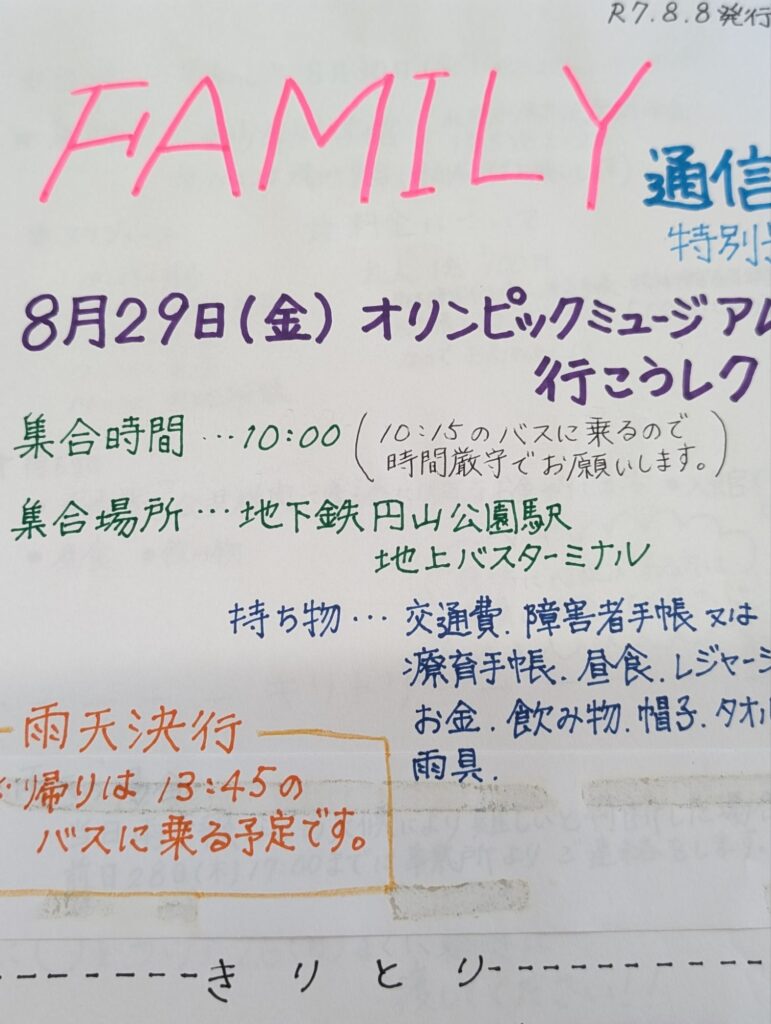 R7.8.8発行
FAMILY
通信
特別
8月29日(金) オリンピックミュージアム
行こうレク
集合時間…10:00(10:15のバスに乗るので
時間厳守でお願いします。)
集合場所…地下鉄円山公園駅
地上バスターミナル
持ち物…交通費.障害者手帳又は
療育手帳.昼食.レジャーシ
お金.飲み物.帽子.タオル
雨具.
雨天決行
※帰りは13:45の
バスに乗る予定です。
きりとり